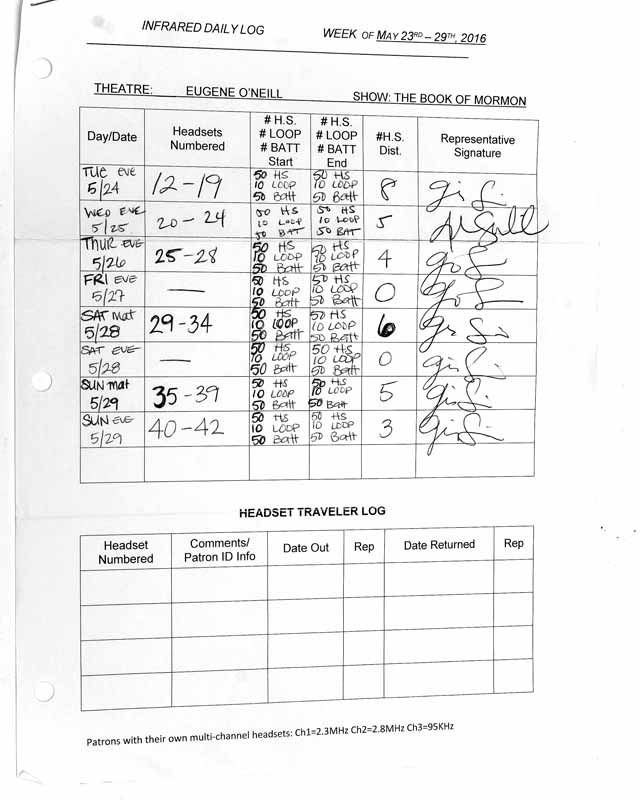 INFRARED DAILY LOG WEEK OF MAY 23RD – 29TH, 2016
THEATRE: EUGENE O'NEILL SHOW: THE BOOK OF MORMON
Day/Date Headsets Numbered # H.S. # LOOP # BATT Start # H.S. # LOOP # BATT End #H.S. Dist. Representative Signature
TUE eve 5/24 12-19 50 HS 10 LOOP 50 Batt 50 HS 10 LOOP 50 Batt 8
WED EVE 5/25 20-24 50 HS 10 LOOP 50 BAT 50 HS 10 LOOP 50 BAT 5
THUR EVE 5/26 25-28 50 HS 10 LOOP 50 Batt 50 HS 10 LOOP 50 Batt 4
FRI EVE 5/27 — 50 HS 10 LOOP 50 Batt 50 HS 10 LOOP 50 Batt 0
SAT Mat 5/28 29-34 50 HS 10 LOOP 50 Batt 50 HS 10 LOOP 50 Batt 6
SAT EVE 5/28 — 50 HS 10 LOOP 50 Batt 50 HS 10 LOOP 50 Batt 0
SUN mat 5/29 35-39 50 HS 10 LOOP 50 Batt 50 HS 10 LOOP 50 Batt 5
SUN EVE 5/29 40-42 50 HS 10 LOOP 50 Batt 50 HS 10 LOOP 50 Batt 3
HEADSET TRAVELER LOG
Headset Numbered Comments/ Patron ID Info Date Out Rep Date Returned Rep
Patrons with their own multi-channel headsets: Ch1=2.3MHz Ch2=2.8MHz Ch3=95KHz